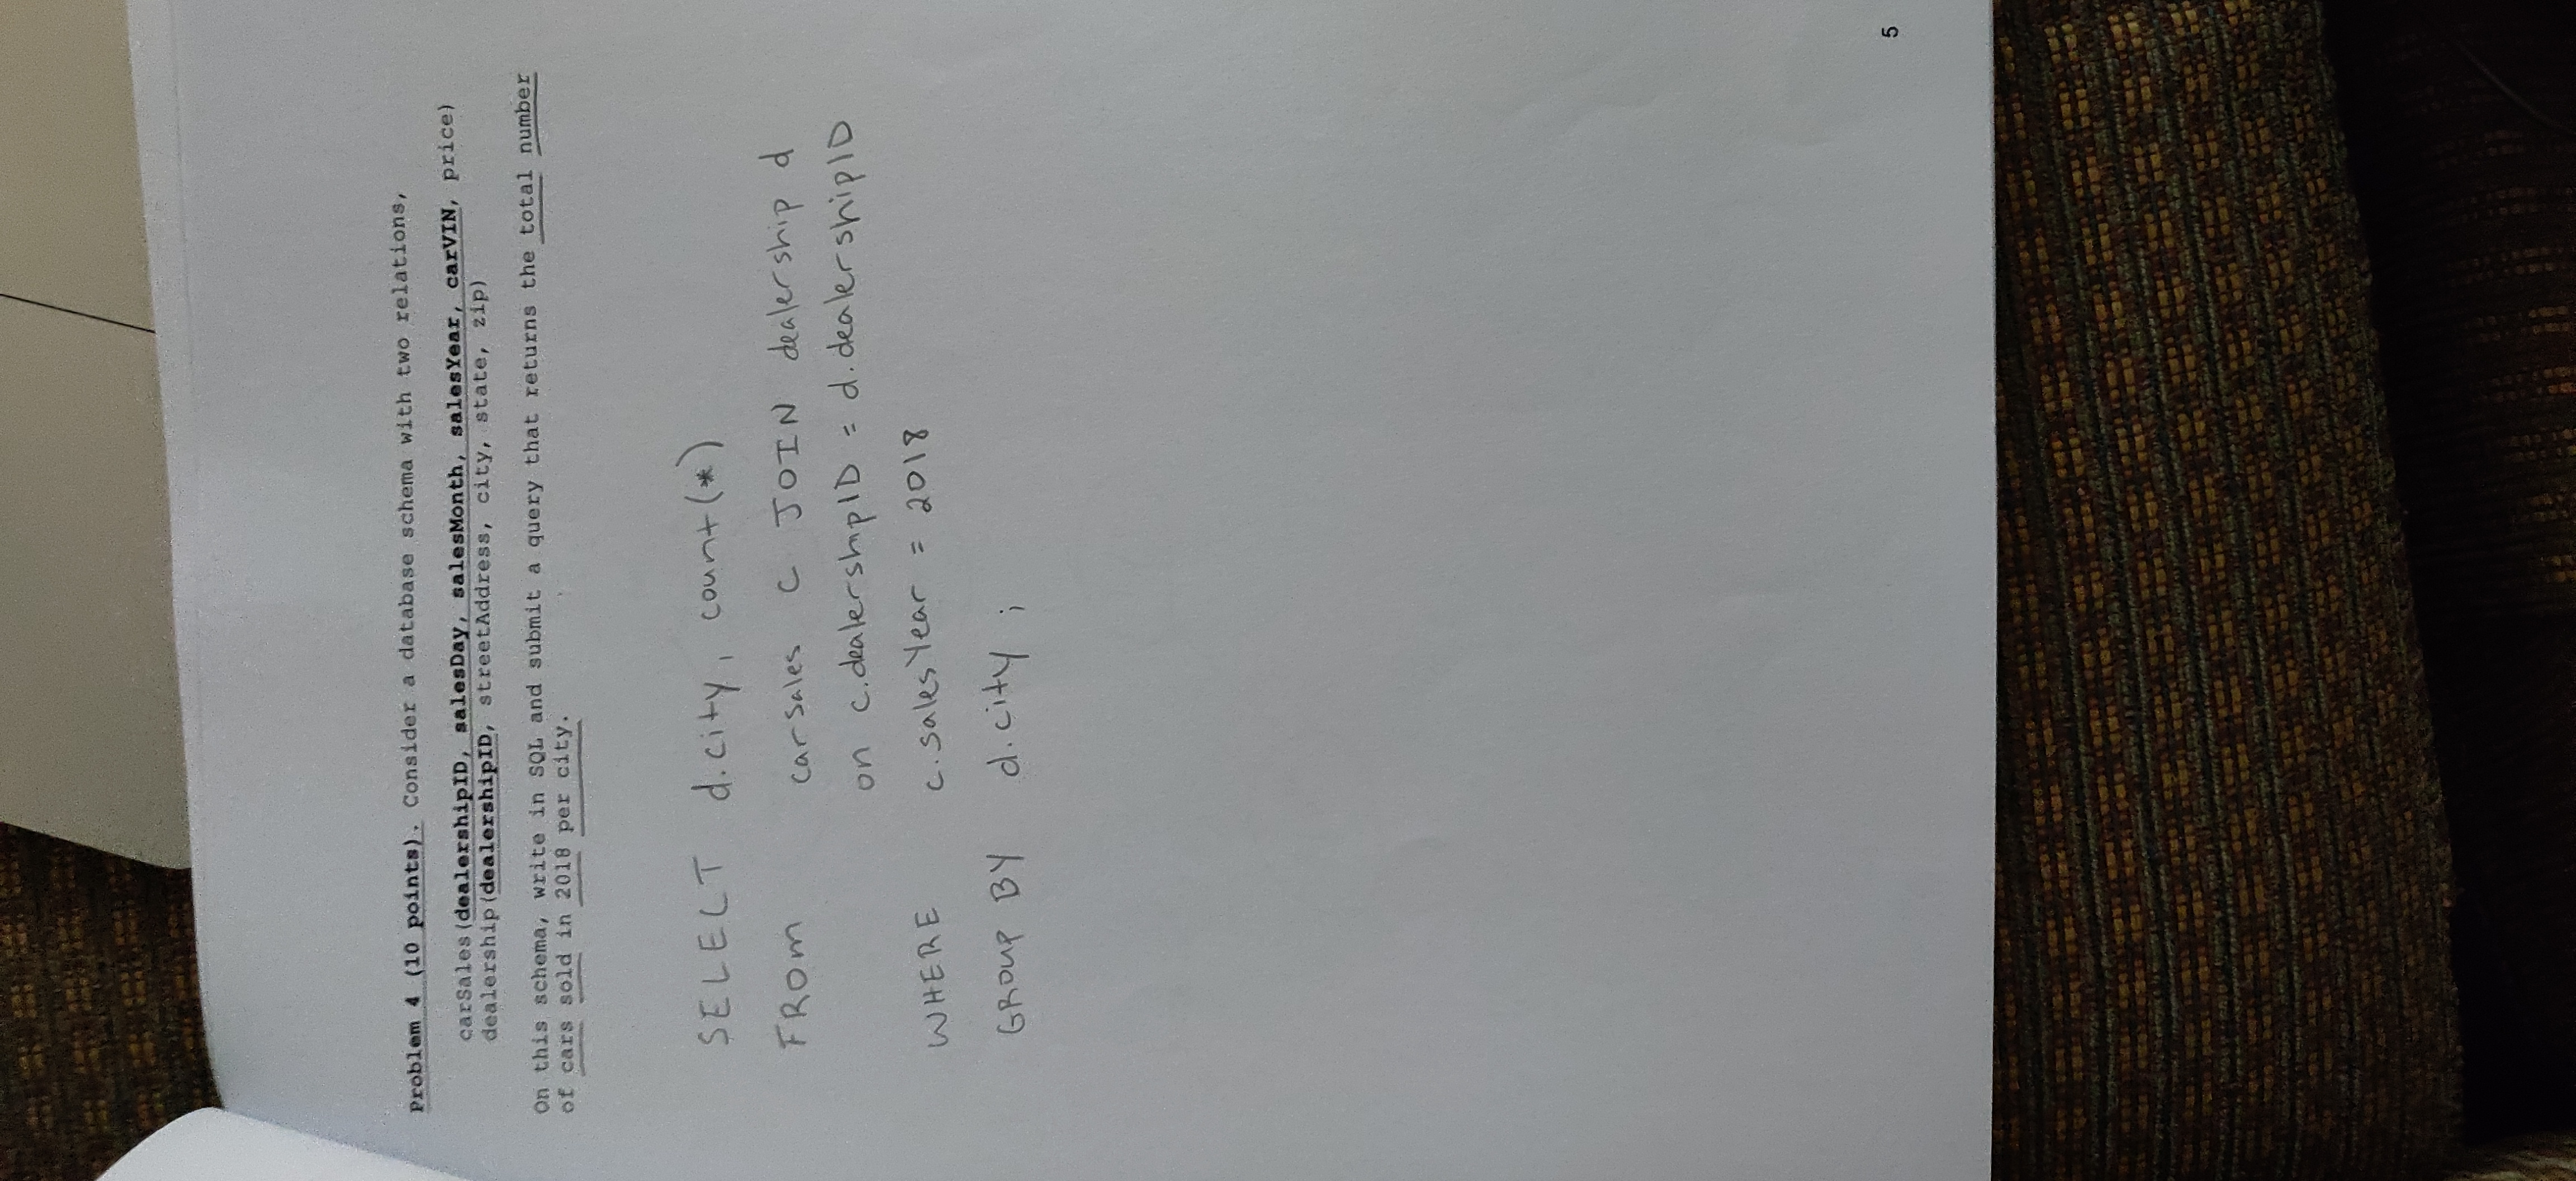 Problem 4 (10 points). Consider a database schema with two relations,
carSales(dealershipID, salesDay, salesMonth, salesYear, carVIN, price)
dealership(dealershipID, streetAddress, city, state, zip)
On this schema, write in SQL and submit a query that returns the total number
of cars sold in 2018 per city.
SELECT d.city, count(*)
FROM carsales C JOIN dealership d
on c.dealershipID = d.dealershipID
WHERE c.salesYear = 2018
GROUP BY d.city ;
5